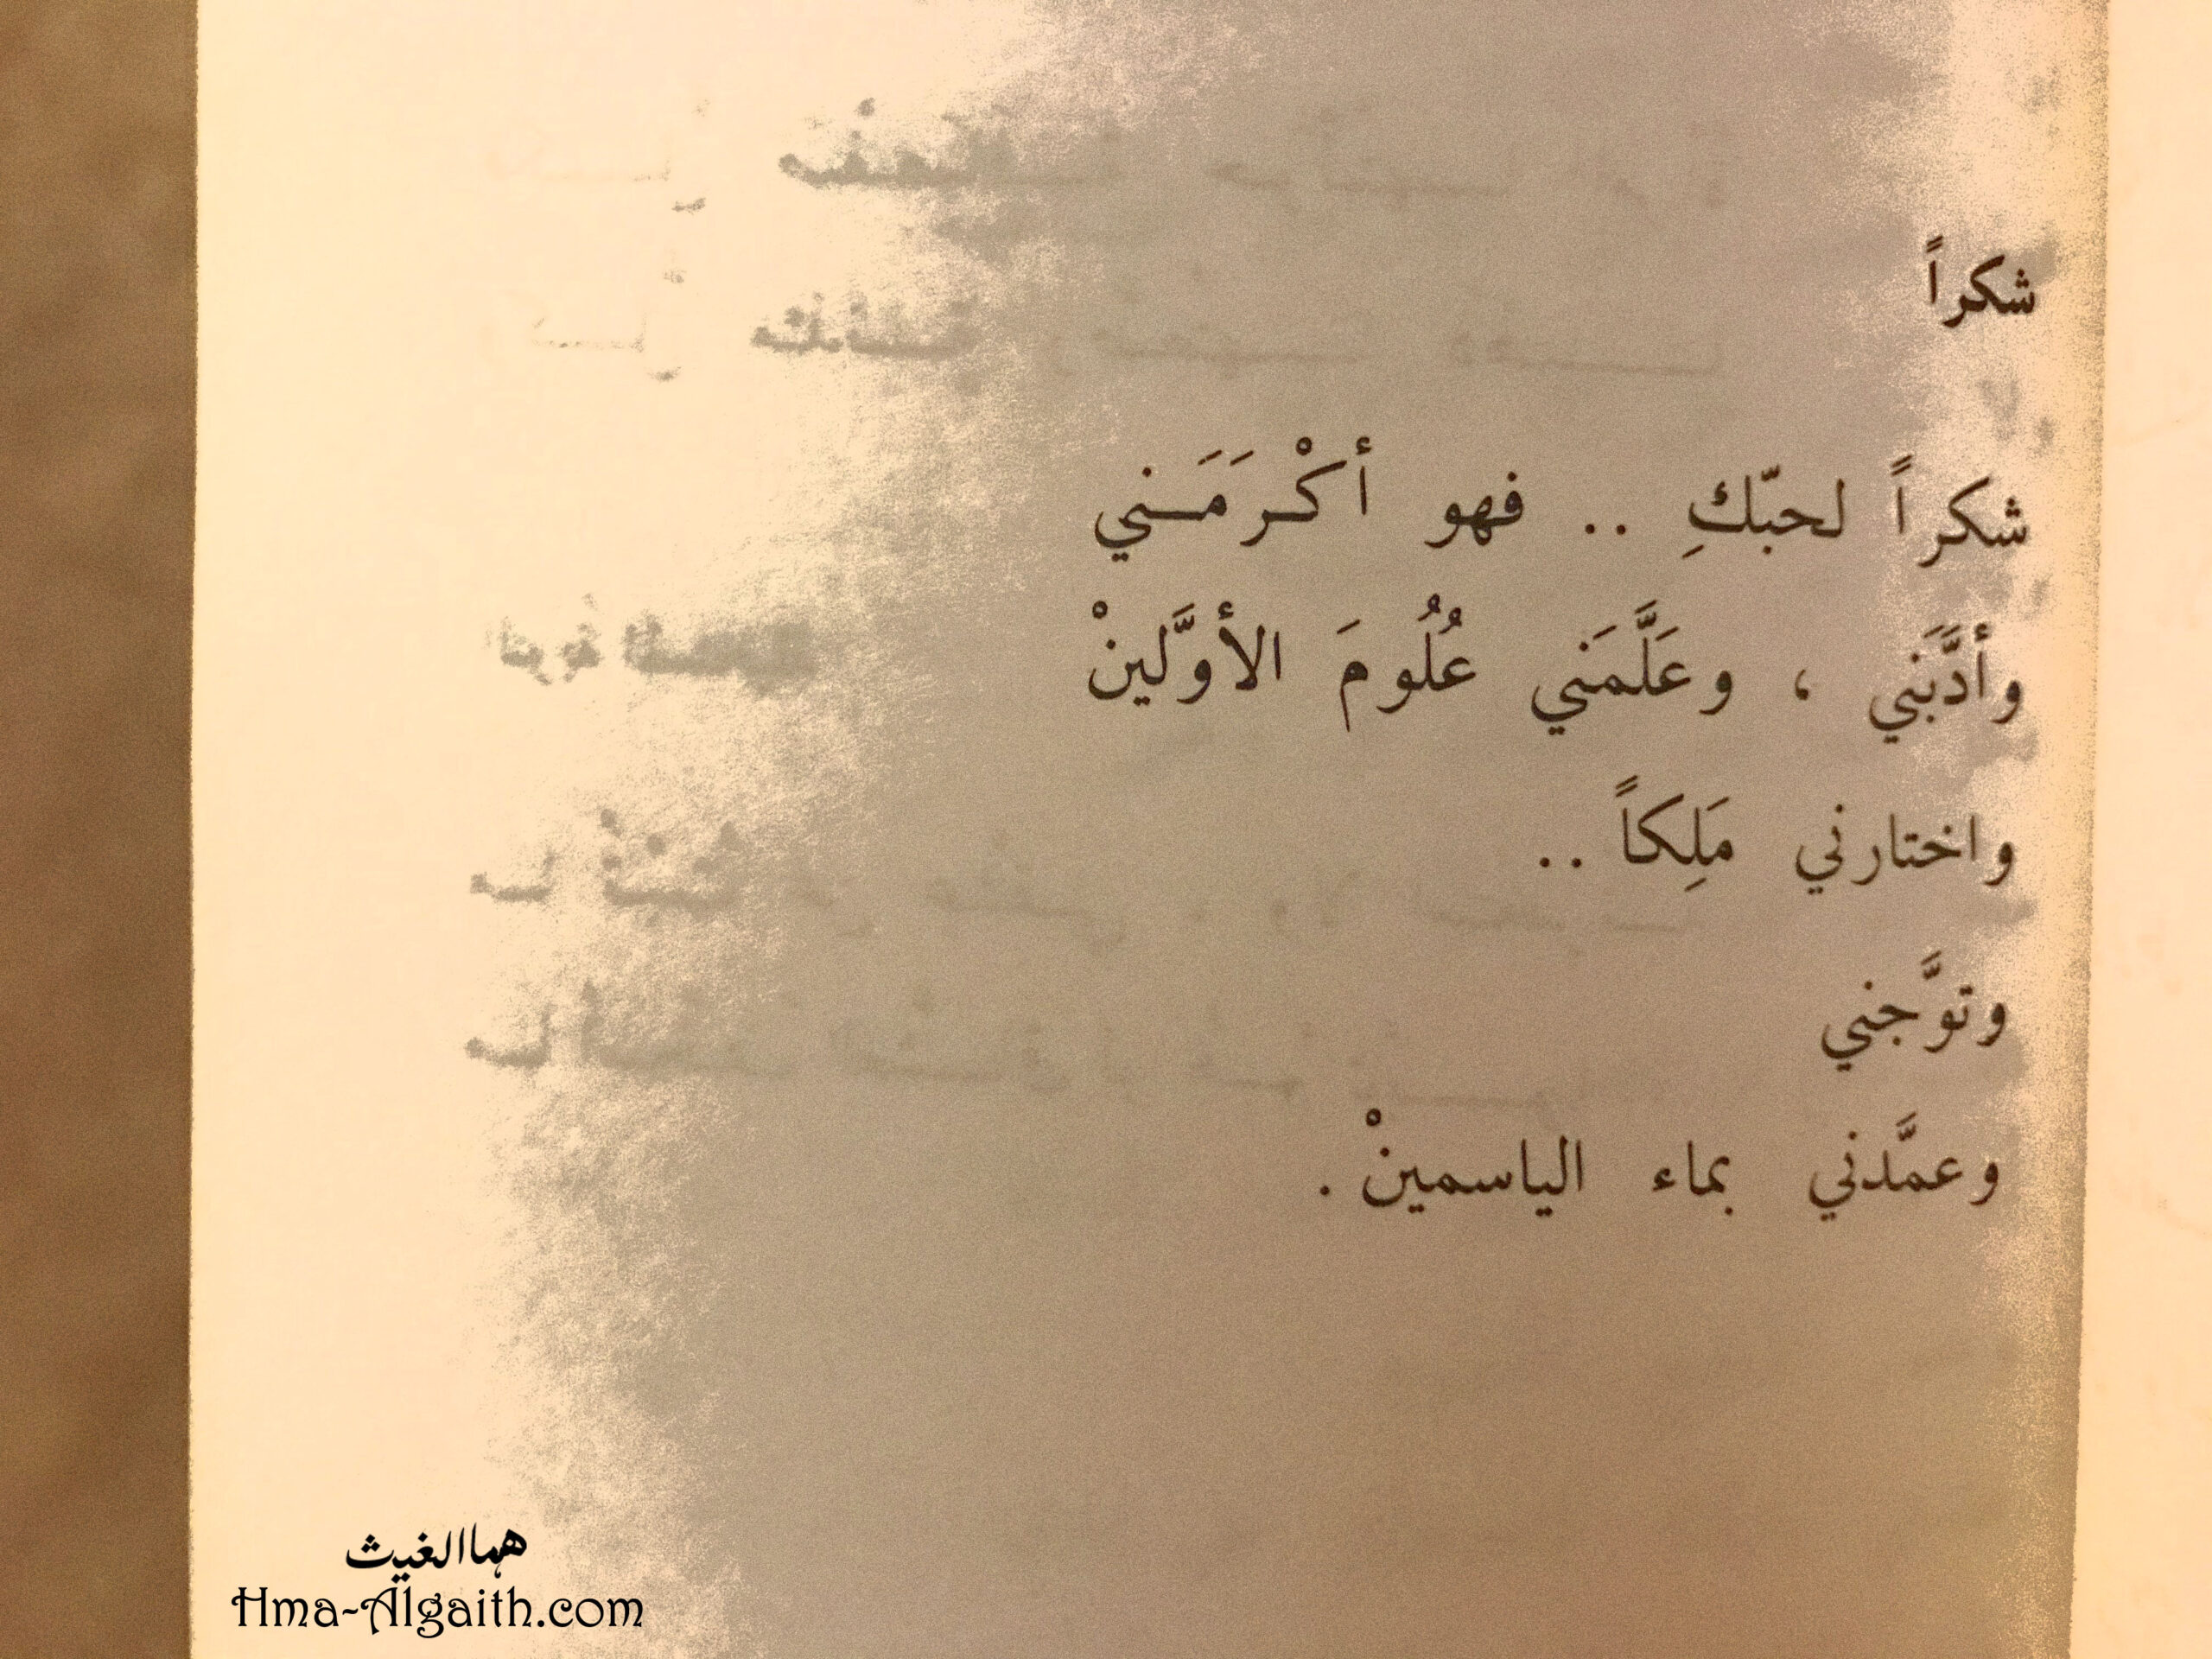 شكراً
شكراً لحبّكِ .. فهو أكْرَمَني
وأدَّبَني ، وعَلَّمَني عُلُومَ الأوَّلينْ
واختارني مَلِكاً ..
وتوَّجني
وعمَّدني بماء الياسمينْ .
هما الغيث
Hma-Algaith.com